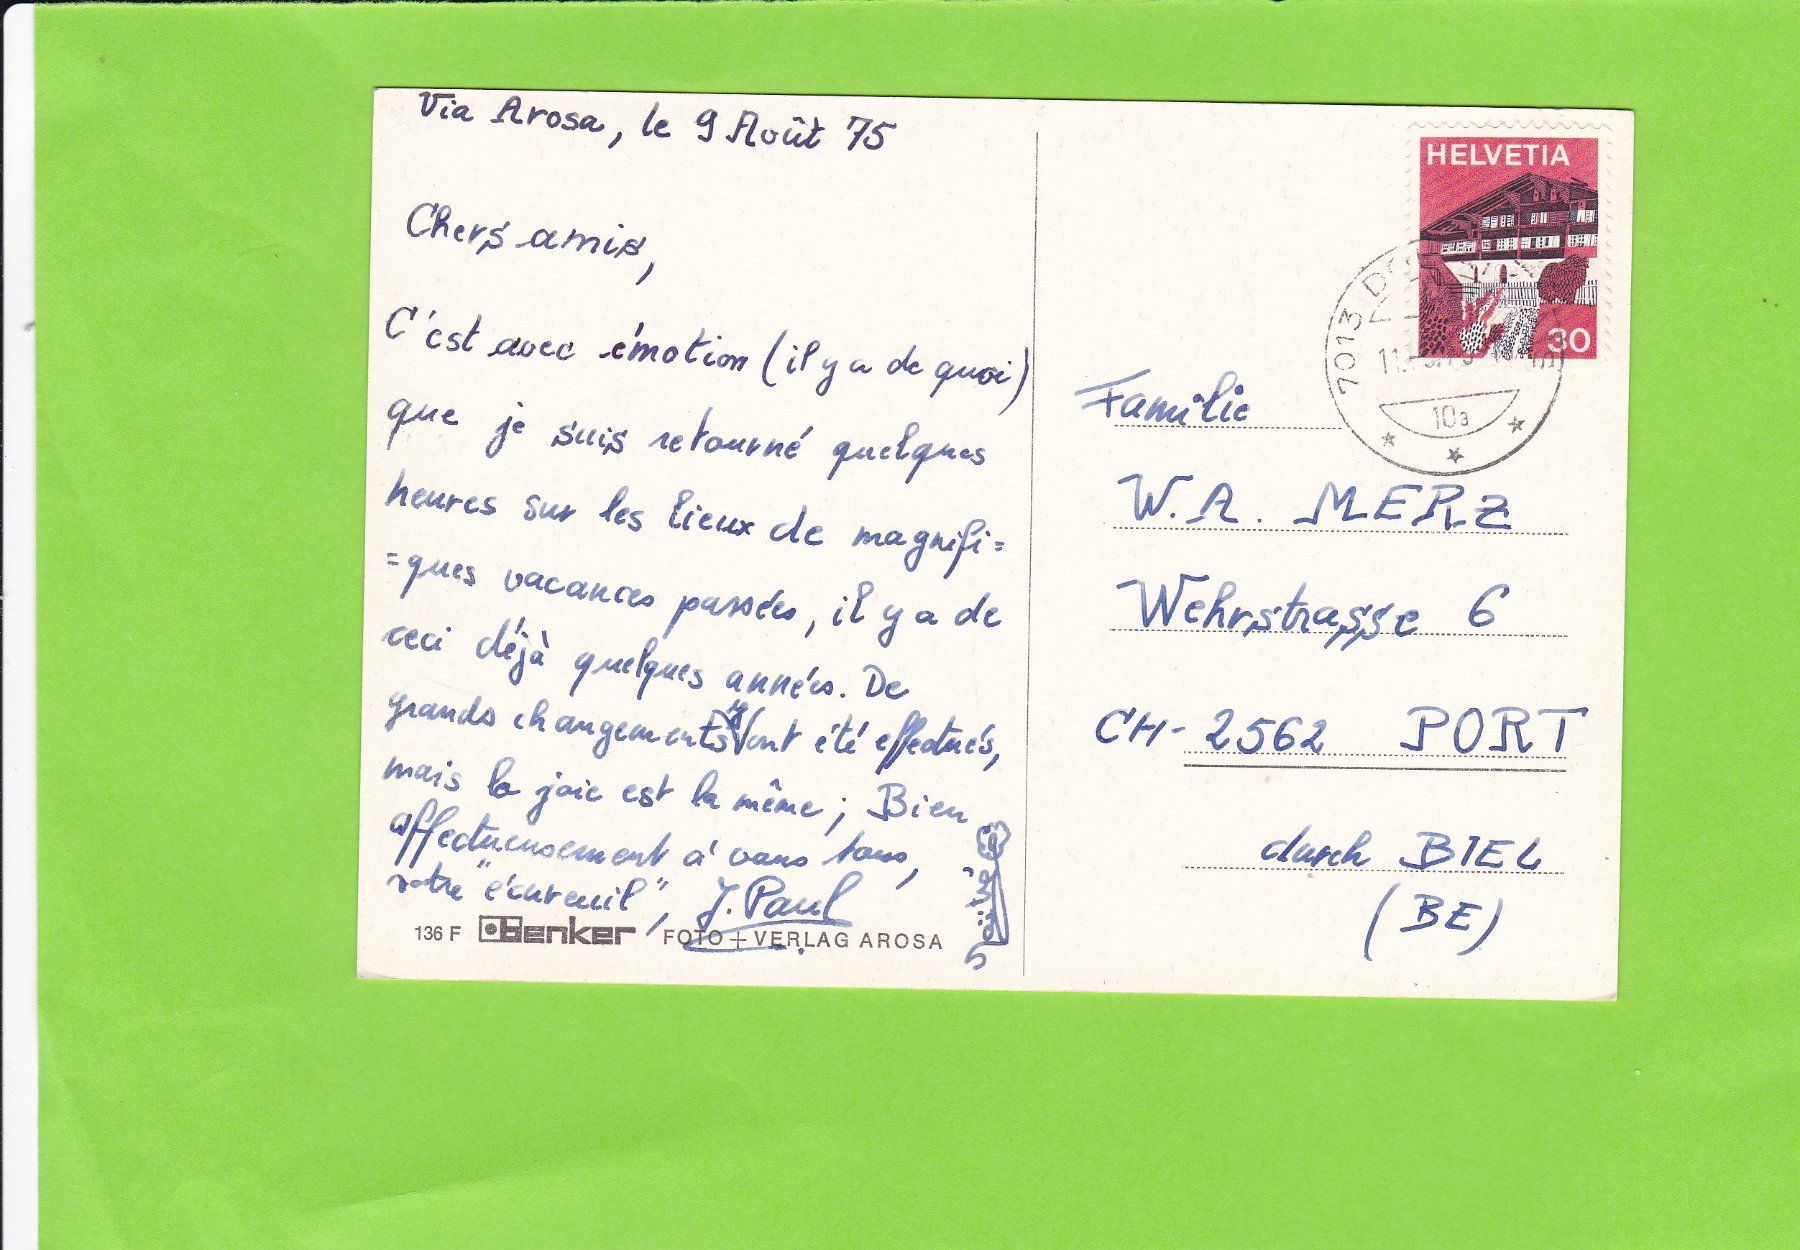 Via Arosa, le 9 Août 75
Chers amis,
C'est avec émotion (il y a de quoi)
que je suis retourné quelques
heures sur les lieux de magnifi=
=ques vacances passées, il y a de
ceci déjà quelques années. De
grands changements y ont été effectués,
mais la joie est la même; Bien
affectueusement à vous tous,
votre "écureuil", J. Paul
136 F Benker FOTO + VERLAG AROSA
HELVETIA
30
7013 D
11.
10a
Familie
W. A. MERZ
Wehrstrasse 6
CH- 2562 PORT
durch BIEL
(BE)